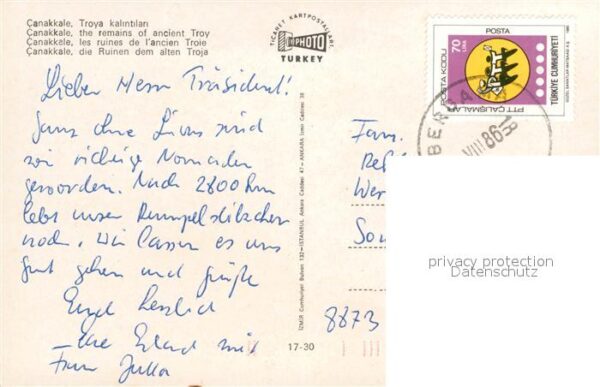 Çanakkale, Troya kalıntıları
Çanakkale, the remains of ancient Troy
Çanakkale, les ruines de l'ancien Troie
Çanakkale, die Ruinen dem alten Troja
TİCARET KARTPOSTALLARI
PHOTO
TURKEY
POSTA
POSTA KODU
70 LİRA
PTT ÇALIŞMALARI
TÜRKİYE CUMHURİYETİ
BERGAMA
VIII 86
Lieber Herr Präsident!
Ganz ohne Lions sind
wir richtige Nomaden
geworden. Nach 2800 km
lebt unser Rumpelstilzchen
noch. Wir lassen es uns
gut gehen und grüße
Euch herzlich
Ihre Erhard mit
Frau Jutta
Fam.
Wer
Son
8873
İZMİR Cumhuriyet Bulvarı 132 - İSTANBUL Ankara Caddesi 47 - ANKARA İzmir Caddesi 38
17-30
privacy protection
Datenschutz